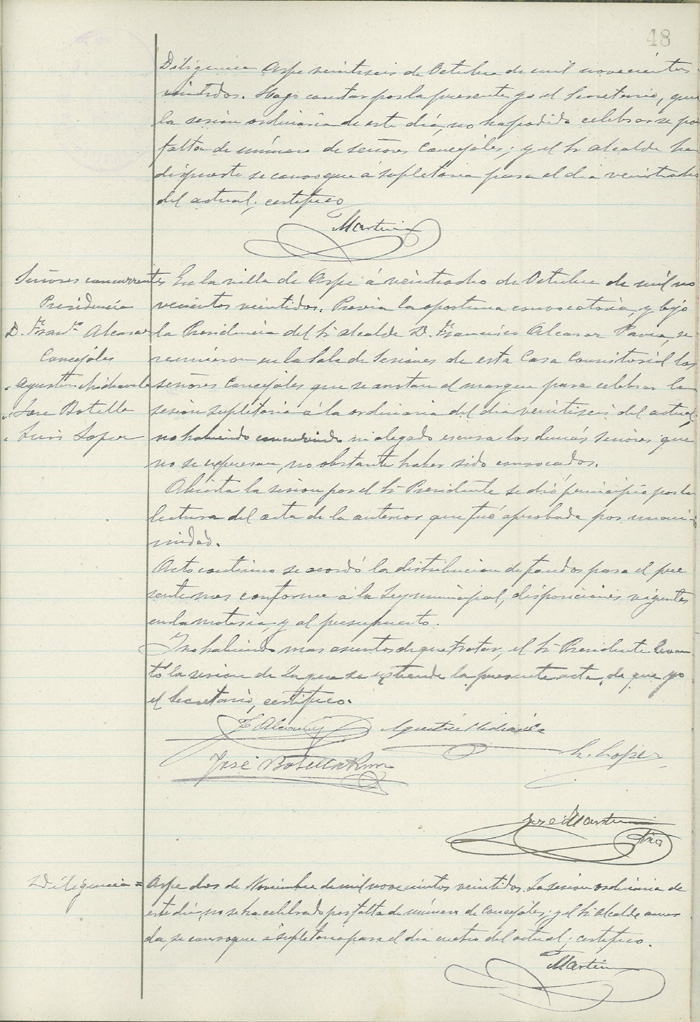 48
Diligencia Aspe veintiseis de Octubre de mil novecientos
veintidos. Hago constar por la presente yo el Secretario, que
la sesión ordinaria de este dia, no ha podido celebrarse por
falta de número de señores Concejales; y el Sr. alcalde ha
dispuesto se convoque á supletoria para el dia veintiocho
del actual, certifico
Martin
Señores concurrentes
Presidencia
D. Franco. Alcaraz
Concejales
" Agustin
" Jose Botella
" Luis Lopez
En la villa de Aspe á veintiocho de Octubre de mil no
vecientos veintidos. Previa la oportuna convocatoria, y bajo
la Presidencia del Sr. alcalde D. Francisco Alcaraz Pavia, se
reunieron en la Sala de Sesiones de esta Casa Consistorial los
señores Concejales que se anotan al margen para celebrar la
sesión supletoria á la ordinaria del dia veintiseis del actual
no habiendo concurrido ni alegado escusa los demás señores que
no se expresan, no obstante haber sido convocados.
Abierta la sesion por el Sr. Presidente se dió principio por la
lectura del acta de la anterior que fué aprobada por unani
midad.
Acto continuo se acordó la distribucion de fondos para el pre
sente mes conforme á la Ley municipal, disposiciones vigentes
en la materia y al presupuesto.
Y no habiendo mas asuntos de que tratar, el Sr. Presidente levan
tó la sesion de la que se extiende la presente acta, de que yo
el Secretario, certifico.
F. Alcaraz Agustin
José Botella L. Lopez
José Martin
Srio
Diligencia = Aspe dos de Noviembre de mil novecientos veintidos. La sesion ordinaria de
este dia, no se ha celebrado por falta de número de Concejales; y el Sr. Alcalde acuer
da, se convoque á supletoria para el dia cuatro del actual; certifico.
Martin